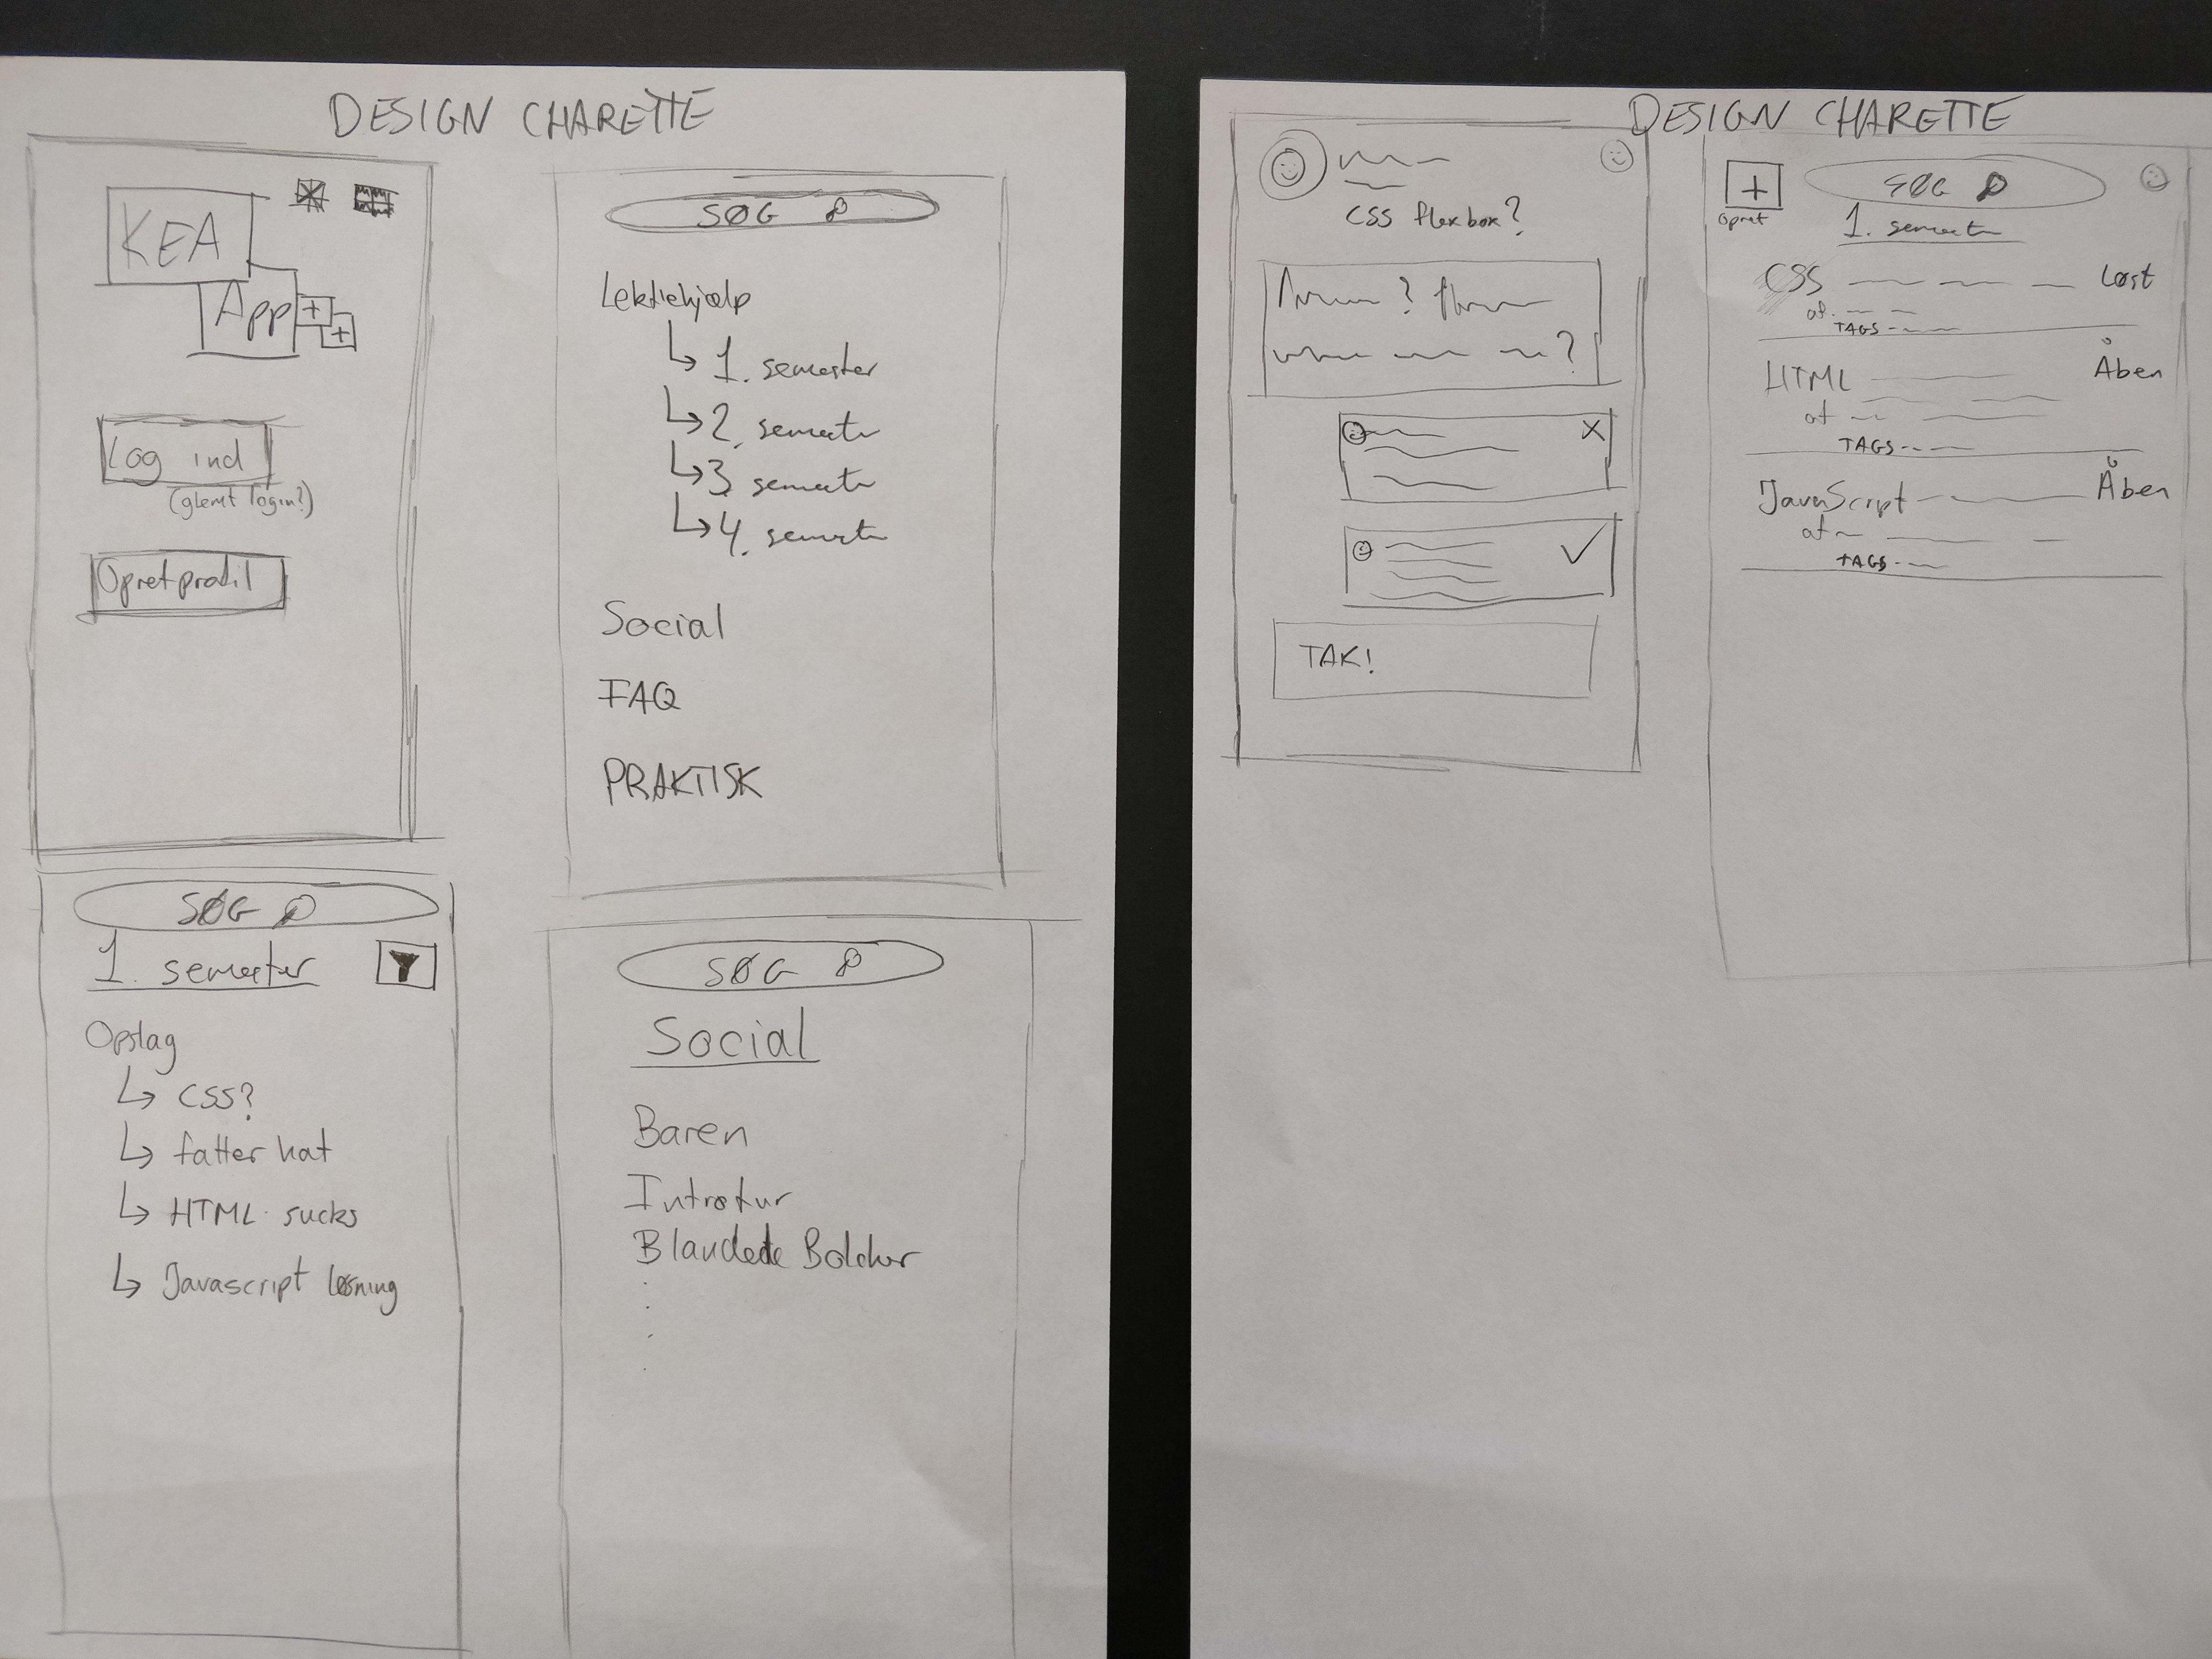 DESIGN CHARETTE
KEA
App
Log ind
(glemt login?)
Opret profil
SØG
Lektiehjælp
1. semester
2. semester
3. semester
4. semester
Social
FAQ
PRAKTISK
SØG
1. semester
Opslag
CSS?
fatter hat
HTML sucks
Javascript løsning
SØG
Social
Baren
Introtur
Blandede Bolcher
DESIGN CHARETTE
CSS flexbox?
?
?
TAK!
Opret
SØG
1. semester
CSS Løst
af
TAGS
HTML Åben
af
TAGS
JavaScript Åben
af
TAGS